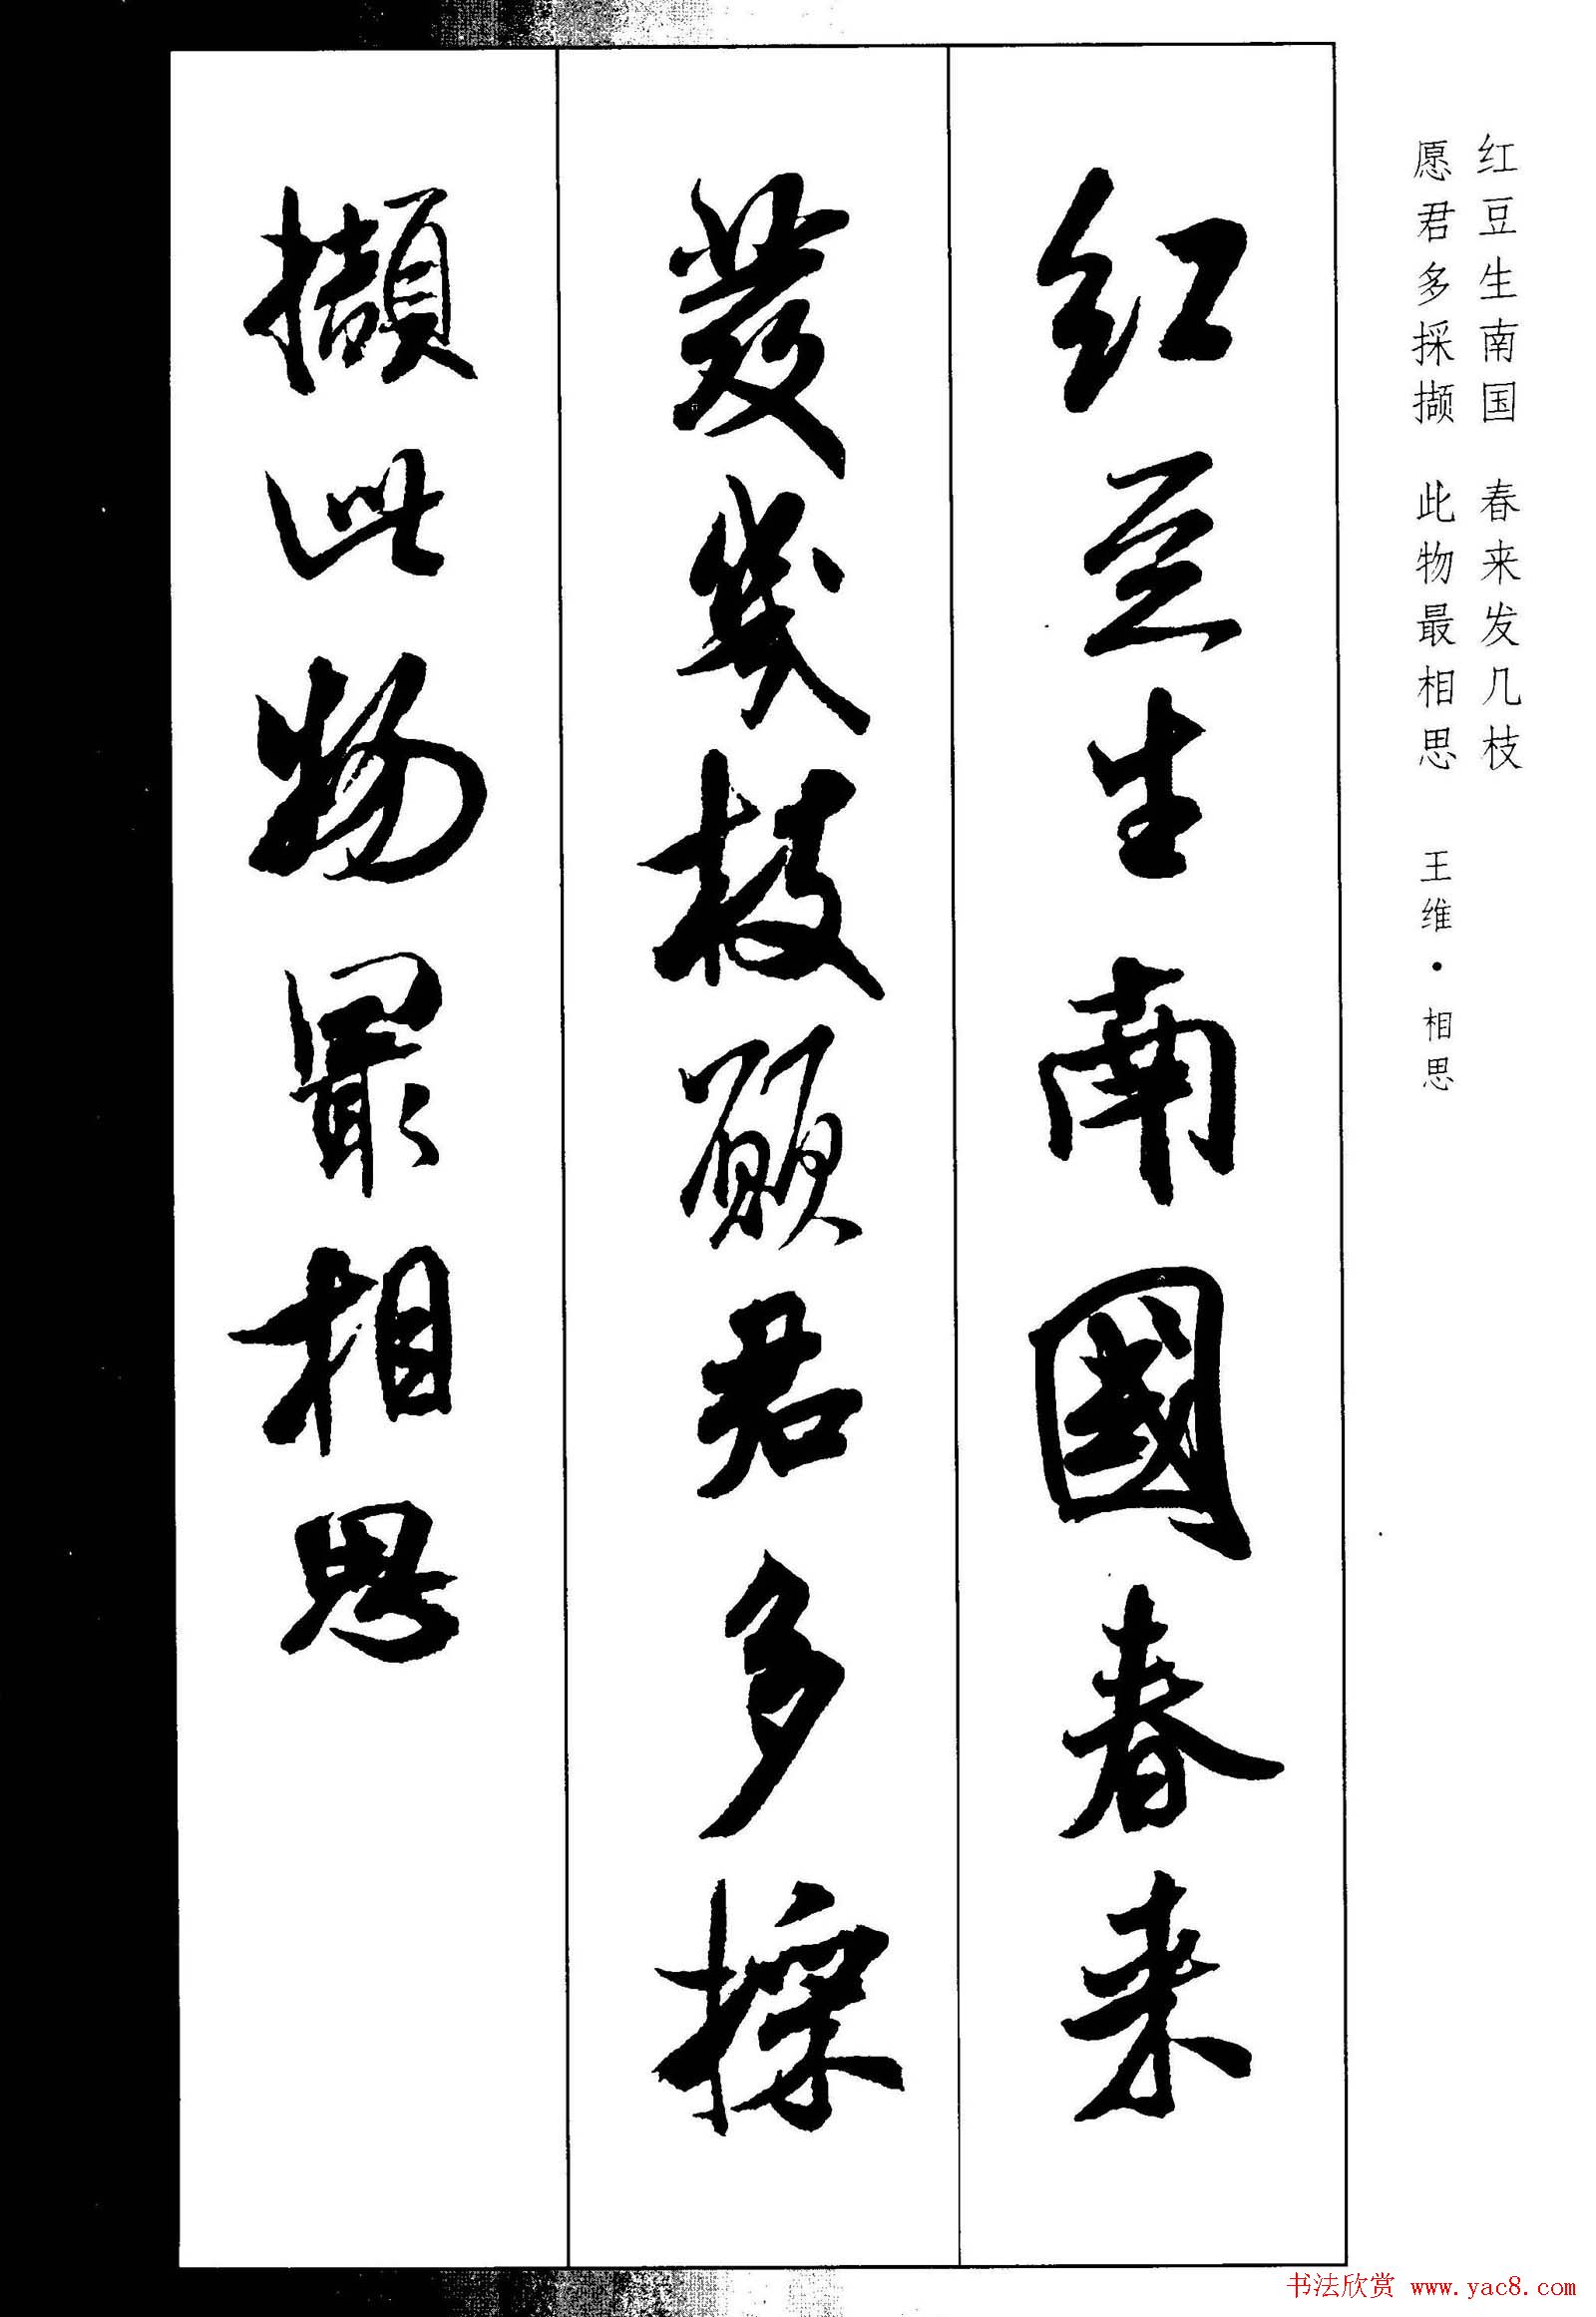 红豆生南国 春来发几枝
愿君多採撷 此物最相思 王维·相思
红豆生南國春来
發幾枝願君多採
擷此物最相思
书法欣赏 www.yac8.com